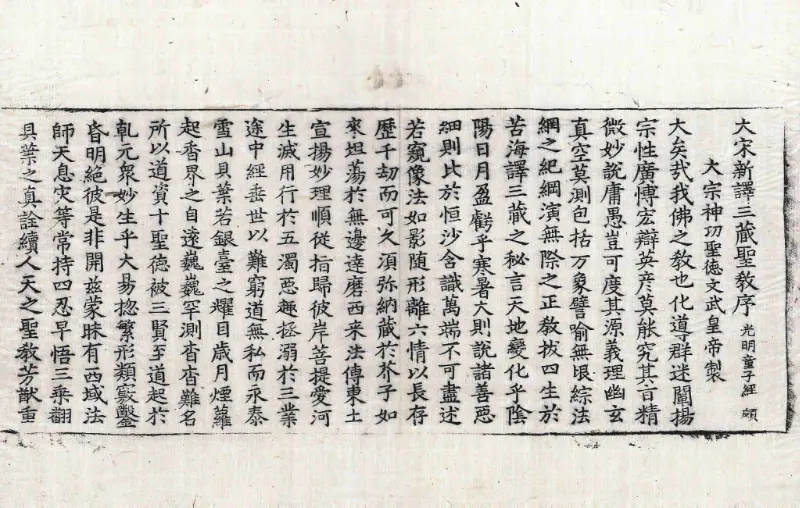 大宋新譯三藏聖教序 光明童子經 頗
太宗神功聖德文武皇帝製
大矣哉我佛之教也化導群迷闡揚
宗性廣博宏辯英彥莫能究其旨精
微妙說庸愚豈可度其源義理幽玄
真空莫測包括万象譬喻無垠綜法
網之紀綱演無際之正教拔四生於
苦海譯三藏之秘言天地變化乎陰
陽日月盈虧乎寒暑大則說諸善惡
細則比於恒沙含識萬端不可盡述
若窺像法如影随形離六情以長存
歷千劫而可久湏弥納藏於芥子如
來坦蕩於無邊達磨西来法傳東土
宣揚妙理順從指歸彼岸菩提愛河
生滅用行於五濁惡趣拯溺於三業
途中經垂世以難窮道無私而永泰
雪山貝葉若銀臺之耀目歲月煙蘿
起香界之自遠巍巍罕測杳杳難名
所以道資十聖德被三賢至道起於
乹元衆妙生乎太易揔繁形類竅鑿
昏明絕彼是非開兹蒙昧有西域法
師天息灾等常持四忍早悟三乘翻
貝葉之真詮續人天之聖教芳猷重